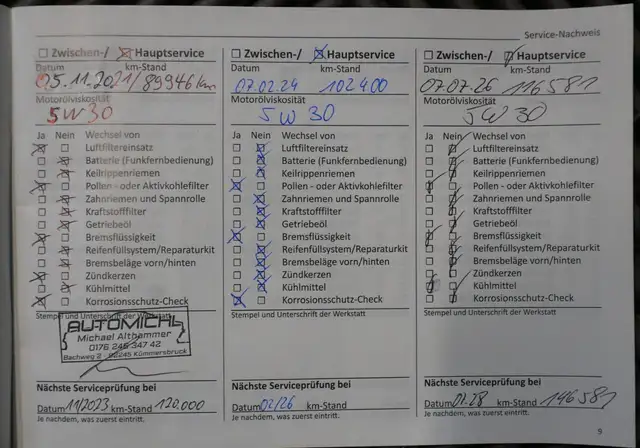 Service-Nachweis
Zwischen-/ Hauptservice
Datum km-Stand
25.11.2021 / 89946 km
Motorölviskosität
5W30
Ja Nein Wechsel von
Luftfiltereinsatz
Batterie (Funkfernbedienung)
Keilrippenriemen
Pollen - oder Aktivkohlefilter
Zahnriemen und Spannrolle
Kraftstofffilter
Getriebeöl
Bremsflüssigkeit
Reifenfüllsystem/Reparaturkit
Bremsbeläge vorn/hinten
Zündkerzen
Kühlmittel
Korrosionsschutz-Check
Stempel und Unterschrift der Werkstatt
AUTOMICHL
Michael Althammer
0176 246 347 42
Bachweg 2 - 92245 Kümmersbruck
Nächste Serviceprüfung bei
Datum 11/2023 km-Stand 120.000
Je nachdem, was zuerst eintrifft.
Zwischen-/ Hauptservice
Datum km-Stand
07.02.24 102400
Motorölviskosität
5W30
Ja Nein Wechsel von
Luftfiltereinsatz
Batterie (Funkfernbedienung)
Keilrippenriemen
Pollen - oder Aktivkohlefilter
Zahnriemen und Spannrolle
Kraftstofffilter
Getriebeöl
Bremsflüssigkeit
Reifenfüllsystem/Reparaturkit
Bremsbeläge vorn/hinten
Zündkerzen
Kühlmittel
Korrosionsschutz-Check
Stempel und Unterschrift der Werkstatt
Nächste Serviceprüfung bei
Datum 02/26 km-Stand
Je nachdem, was zuerst eintrifft.
Zwischen-/ Hauptservice
Datum km-Stand
07.07.26 116581
Motorölviskosität
5W30
Ja Nein Wechsel von
Luftfiltereinsatz
Batterie (Funkfernbedienung)
Keilrippenriemen
Pollen - oder Aktivkohlefilter
Zahnriemen und Spannrolle
Kraftstofffilter
Getriebeöl
Bremsflüssigkeit
Reifenfüllsystem/Reparaturkit
Bremsbeläge vorn/hinten
Zündkerzen
Kühlmittel
Korrosionsschutz-Check
Stempel und Unterschrift der Werkstatt
Nächste Serviceprüfung bei
Datum km-Stand 146581
Je nachdem, was zuerst eintrifft.
5